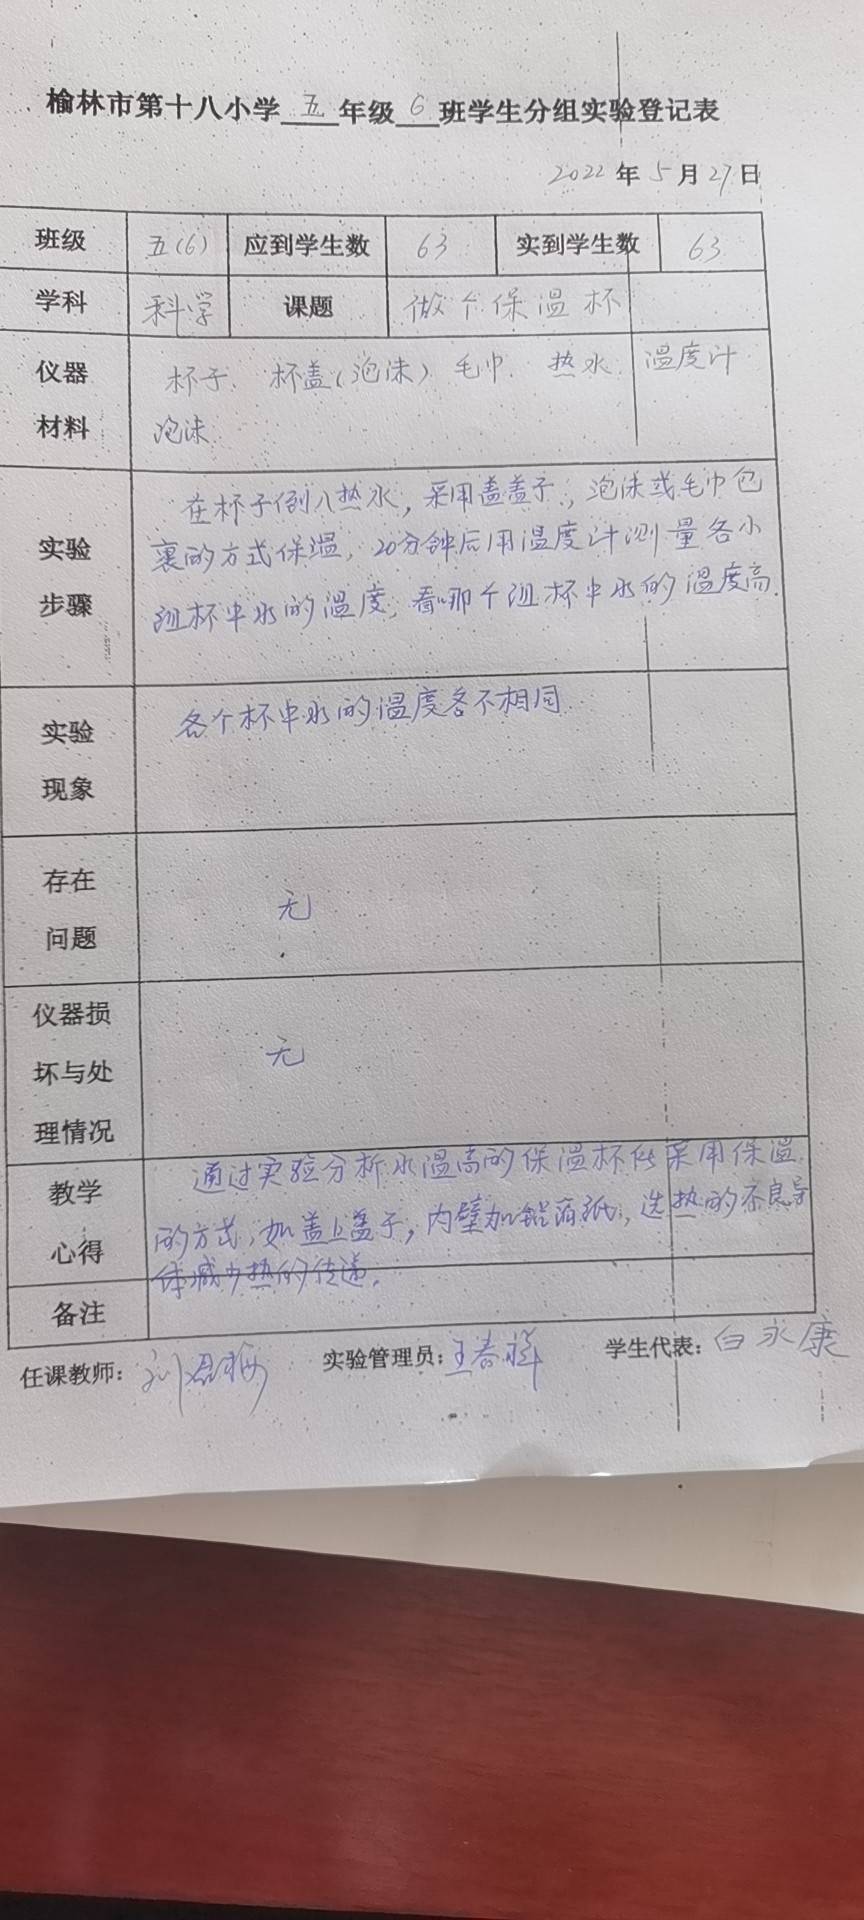 榆林市第十八小学五年级6班学生分组实验登记表
2022年5月27日
班级 五(6) 应到学生数 63 实到学生数 63
学科 科学 课题 做个保温杯
仪器 杯子、杯盖(泡沫) 毛巾、热水、温度计
材料 泡沫
在杯子倒入热水，采用盖盖子，泡沫或毛巾包
实验 裹的方式保温，20分钟后用温度计测量各小
步骤 组杯中水的温度，看哪个组杯中水的温度高.
实验 各个杯中水的温度各不相同.
现象
存在
无
问题
仪器损
无
坏与处
理情况
教学 通过实验分析水温高的保温杯 采用保温
的方式，如盖上盖子，内壁加铝箔纸，选热的不良导
心得 体减少热的传递.
备注
任课教师: 实验管理员: 王春 学生代表: 白永康